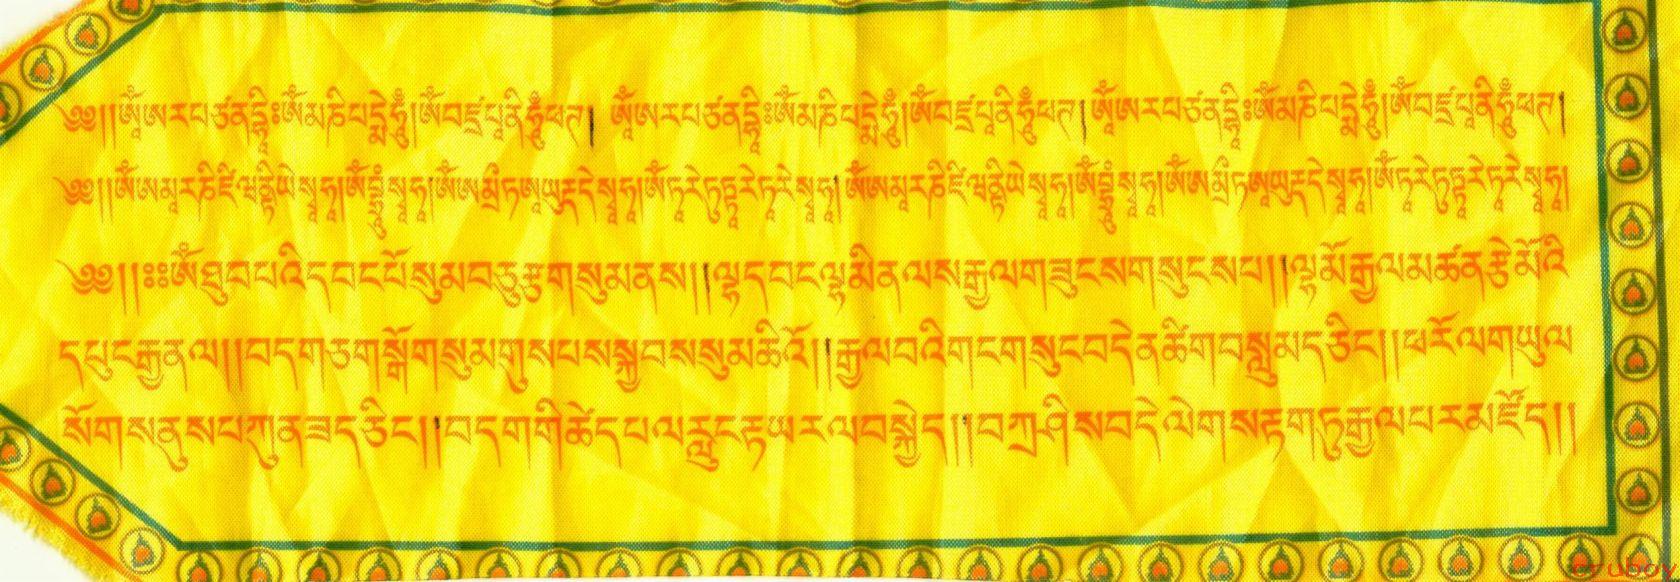 ༄༅།།ཨོཾ་ཨ་ར་པ་ཙ་ན་དྷཱི༔ཨོཾ་མ་ཎི་པདྨེ་ཧཱུྃ།ཨོཾ་བཛྲ་པཱ་ནི་ཧཱུྃ་ཕཊ། ཨོཾ་ཨ་ར་པ་ཙ་ན་དྷཱི༔ཨོཾ་མ་ཎི་པདྨེ་ཧཱུྃ།ཨོཾ་བཛྲ་པཱ་ནི་ཧཱུྃ་ཕཊ།ཨོཾ་ཨ་ར་པ་ཙ་ན་དྷཱི༔ཨོཾ་མ་ཎི་པདྨེ་ཧཱུྃ།ཨོཾ་བཛྲ་པཱ་ནི་ཧཱུྃ་ཕཊ།
༄༅།།ཨོཾ་ཨ་མཱ་ར་ཎི་ཛི་ཝནྟི་ཡེ་སྭཱ་ཧཱ།ཨོཾ་བྷྲཱུྃ་སྭཱ་ཧཱ།ཨོཾ་ཨ་མྲི་ཏ་ཨཱ་ཡུརྡ་དེ་སྭཱ་ཧཱ།ཨོཾ་ཏཱ་རེ་ཏུཏྟཱ་རེ་ཏཱུ་རེ་སྭཱ་ཧཱ།ཨོཾ་ཨ་མཱ་ར་ཎི་ཛི་ཝནྟི་ཡེ་སྭཱ་ཧཱ།ཨོཾ་བྷྲཱུྃ་སྭཱ་ཧཱ།ཨོཾ་ཨ་མྲི་ཏ་ཨཱ་ཡུརྡ་དེ་སྭཱ་ཧཱ།ཨོཾ་ཏཱ་རེ་ཏུཏྟཱ་རེ་ཏཱུ་རེ་སྭཱ་ཧཱ།
༄༅།།༔༔ཨོཾ་ཐུབ་པའི་དབང་པོ་སུམ་བཅུ་རྩ་གསུམ་ནས།།ལྷ་དབང་ལྷ་མིན་ལས་རྒྱལ་གཟུངས་གསུངས་པ།།ལྷ་མོ་རྒྱལ་མཚན་རྩེ་མོའི་
དཔུང་རྒྱན་ལ།།བདག་ཅག་སྒོ་གསུམ་གུས་པས་སྐྱབས་སུ་མཆིའོ།།རྒྱལ་བའི་གང་གསུང་བདེན་ཚིག་བསླུ་མེད་ཅིང་།།ཕ་རོལ་གཡུལ་
སོགས་ནུས་པ་ཀུན་ཟད་ཅིང་།།བདག་གི་ཚེ་དཔལ་རླུང་རྟ་ཡར་ལ་བསྐྱེད།།བཀྲ་ཤིས་བདེ་ལེགས་རྟག་ཏུ་རྒྱལ་པར་མཛོད།།